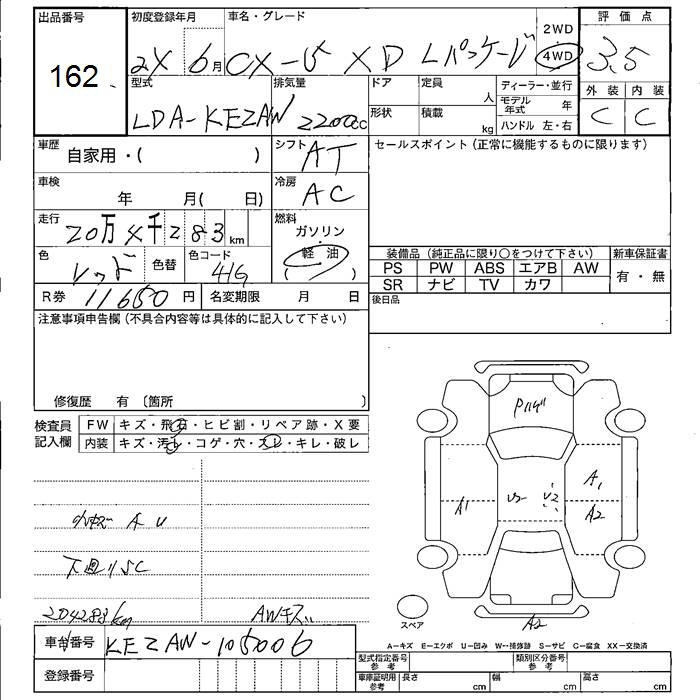 出品番号 初度登録年月 車名・グレード 評価点
162 2X 6月 CX-5 XD Lパッケージ 2WD 4WD 3.5
型式 排気量 ドア 定員 人 ディーラー・並行 外装 内装
LDA-KE2AW 2200cc 形状 積載 kg モデル年式 年 C C
ハンドル 左・右
車歴 自家用・( ) シフト AT セールスポイント(正常に機能するものに限ります)
車検 年 月( 日) 冷房 AC
走行 20万4千283km 燃料 ガソリン
色 レッド 色替 色コード 41G 軽油 ( )
装備品(純正品に限り○をつけて下さい) 新車保証書
PS PW ABS エアB AW 有・無
SR ナビ TV カワ
R券 11650円 名変期限 月 日 後日品
注意事項申告欄(不具合内容等は具体的に記入して下さい)
修復歴 有〔箇所 〕
検査員記入欄 FW キズ・飛石・ヒビ割・リペア跡・X要
内装 キズ・汚レ・コゲ・穴・スレ・キレ・破レ
Pハゲ
A1 U2 U2 A1
A2
A U
下廻りSC
204283km AWキズ
スペア A2
A―キズ E―エクボ U―凹み W―補修跡 S―サビ C―腐食 XX―交換済
車台番号 KE2AW-105006
型式指定番号 参考 類別区分番号 参考
登録番号 車庫証明用 参考 長さ cm 幅 cm 高さ cm